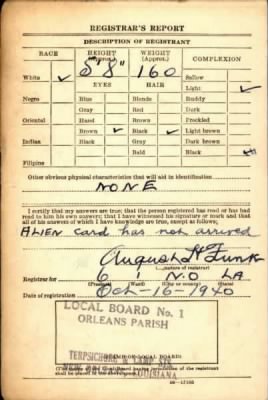 REGISTRAR'S REPORT
DESCRIPTION OF REGISTRANT
RACE HEIGHT (Approx.) WEIGHT (Approx.) COMPLEXION
White ✓ 5' 8" 160 Sallow
EYES HAIR Light ✓
Negro Blue Blonde Ruddy
Gray Red Dark
Oriental Hazel Brown Freckled
Brown ✓ Black ✓ Light brown
Indian Black Gray Dark brown
Bald Black
Filipino
Other obvious physical characteristics that will aid in identification
NONE
I certify that my answers are true; that the person registered has read or has had
read to him his own answers; that I have witnessed his signature or mark and that
all of his answers of which I have knowledge are true, except as follows:
ALIEN card has not arrived
August Funk
(Signature of registrar)
Registrar for 6 1 N.O LA
(Precinct) (Ward) (City or county) (State)
Date of registration Oct-16-1940
LOCAL BOARD No. 1
ORLEANS PARISH
TERPSICHORE & CAMP STS.
LOUISIANA
(STAMP OF LOCAL BOARD)
(The stamp of the Local Board having jurisdiction of the registrant
shall be placed in the above space.)